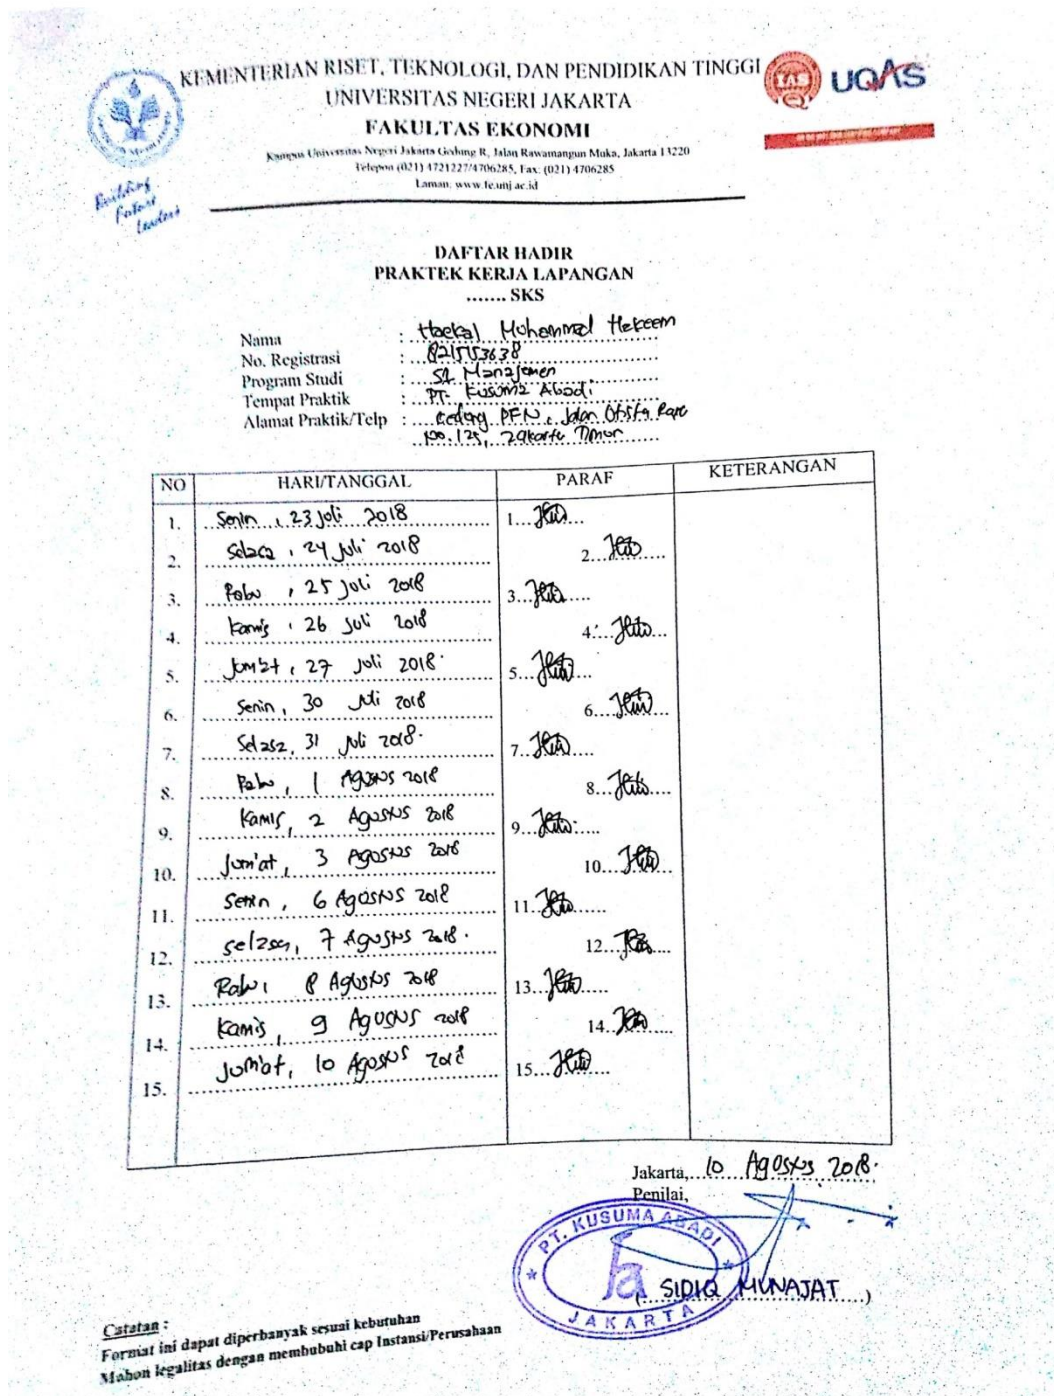 KEMENTERIAN RISET, TEKNOLOGI, DAN PENDIDIKAN TINGGI
UNIVERSITAS NEGERI JAKARTA
FAKULTAS EKONOMI
Kampus Universitas Negeri Jakarta Gedung R, Jalan Rawamangun Muka, Jakarta 13220
Telepon (021) 4721227/4706285, Fax: (021) 4706285
Laman: www.fe.unj.ac.id
IAS
UQAS
Building
Future
Leaders
DAFTAR HADIR
PRAKTEK KERJA LAPANGAN
....... SKS
Nama : Haekal Mohammad Hekeem
No. Registrasi : 8215153638
Program Studi : S1 Manajemen
Tempat Praktik : PT. Kusuma Abadi
Alamat Praktik/Telp : Gedung PFN, Jalan Otista Raya
No. 125, Jakarta Timur
NO HARI/TANGGAL PARAF KETERANGAN
1. Senin, 23 Juli 2018 1...
2. Selasa, 24 Juli 2018 2...
3. Rabu, 25 Juli 2018 3...
4. Kamis, 26 Juli 2018 4...
5. Jum'at, 27 Juli 2018. 5...
6. Senin, 30 Juli 2018 6...
7. Selasa, 31 Juli 2018. 7...
8. Rabu, 1 Agustus 2018 8...
9. Kamis, 2 Agustus 2018 9...
10. Jum'at, 3 Agustus 2018 10...
11. Senin, 6 Agustus 2018 11...
12. Selasa, 7 Agustus 2018. 12...
13. Rabu, 8 Agustus 2018 13...
14. Kamis, 9 Agustus 2018 14...
15. Jum'at, 10 Agustus 2018 15...
Jakarta, 10 Agustus 2018.
Penilai,
PT. KUSUMA ABADI
JAKARTA
( SIDIQ MUNAJAT )
Catatan :
Format ini dapat diperbanyak sesuai kebutuhan
Mohon legalitas dengan membubuhi cap Instansi/Perusahaan